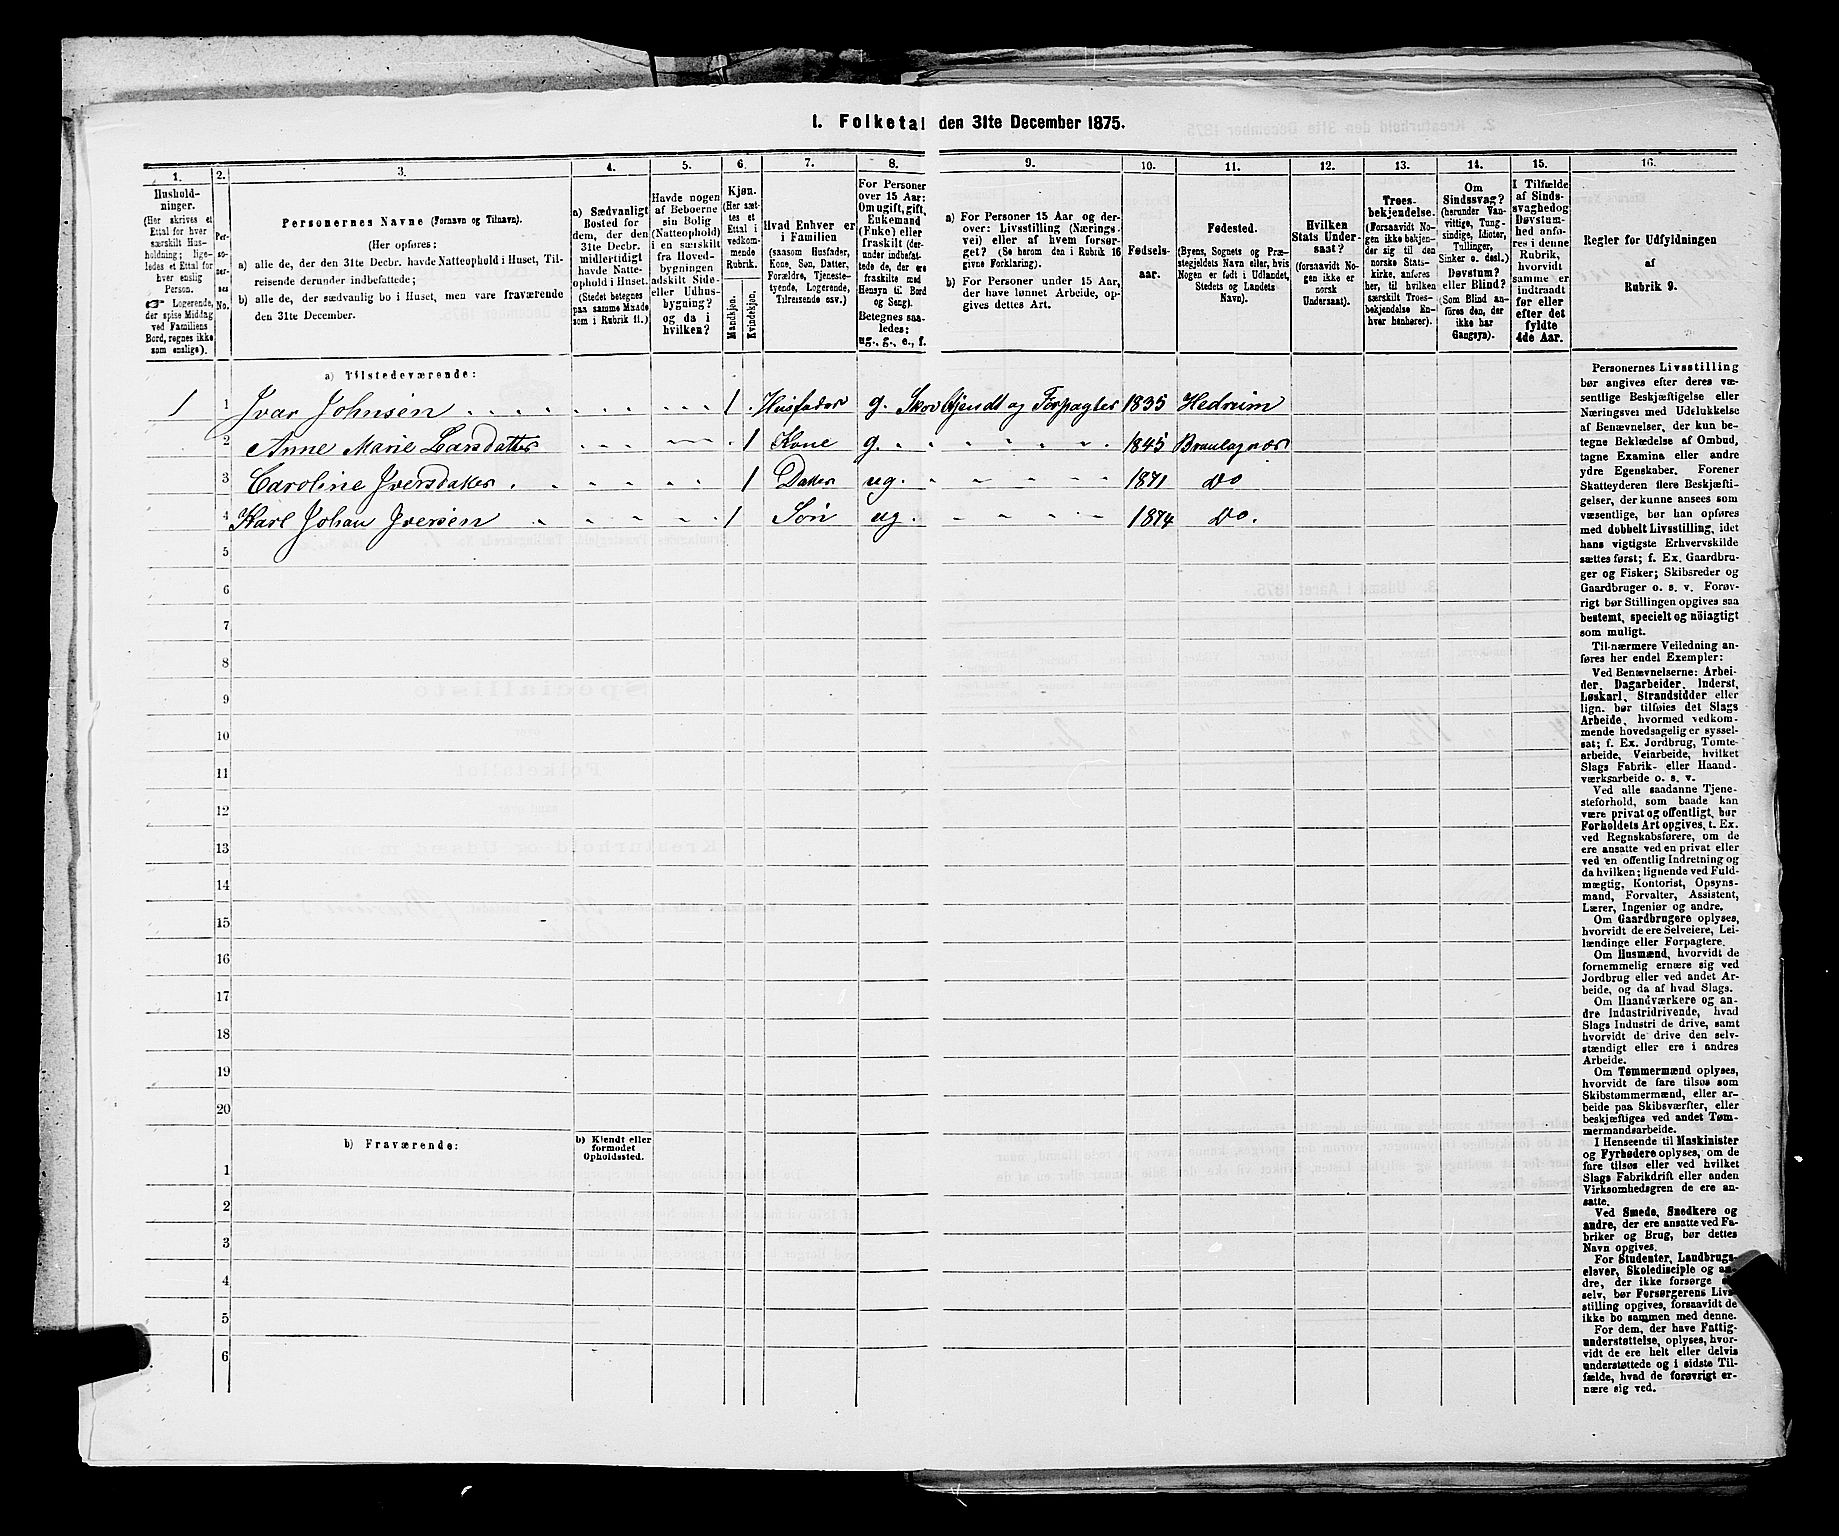 1. Folketal den 31te December 1875.
1. 2. 3. 4. 5. 6. 7. 8. 9. 10. 11. 12. 13. 14. 15. 16.
Hushold-
ninger.
(Her skrives et
Ettal for hver
særskilt Hus-
holdning; lige-
ledes et Ettal for
hver enslig
Person.
☞ Logerende,
der spise Middag
ved Familiens
Bord, regnes ikke
som enslige).
Per-
so-
ner-
nes
No.
Personernes Navne (Fornavn og Tilnavn).
(Her opføres:
a) alle de, der den 31te Decbr. havde Natteophold i Huset, Til-
reisende derunder indbefattede;
b) alle de, der sædvanlig bo i Huset, men vare fraværende
den 31te December.
a) Sædvanligt
Bosted for
dem, der den
31te Decbr.
midlertidigt
havde Natte-
ophold i Huset.
(Stedet betegnes
paa samme Maade
som i Rubrik 11.)
Havde nogen
af Beboerne
sin Bolig
(Natteophold)
i en særskilt
fra Hoved-
bygningen
adskilt Side-
eller Udhus-
bygning?
og da i
hvilken?
Kjøn.
(Her sæt-
tes et
Ettal i
vedkom-
mende
Rubrik.
Mandkjøn.
Kvindekjøn.
Hvad Enhver er
i Familien
(saasom Husfader,
Kone, Søn, Datter,
Forældre, Tjeneste-
tyende, Logerende,
Tilreisende osv.)
For Personer
over 15 Aar:
Om ugift, gift,
Enkemand
(Enke) eller
fraskilt (der-
under indbefat-
tede de, der ere
fraskilte med
Hensyn til Bord
og Seng).
Betegnes saa-
ledes:
ug., g., e., f.
a) For Personer 15 Aar og der-
over: Livsstilling (Nærings-
vei) eller af hvem forsør-
get? (Se herom den i Rubrik 16
givne Forklaring).
b) For Personer under 15 Aar,
der have lønnet Arbeide, op-
gives dettes Art.
Fødsels-
aar.
Fødested.
(Byens, Sognets og Præ-
stegjeldets Navn eller, hvis
Nogen er født i Udlandet,
Stedets og Landets
Navn).
Hvilken
Stats Under-
saat?
(forsaavidt No-
gen ikke er
norsk
Undersaat).
Troes-
bekjendelse.
(Forsaavidt No-
gen ikke bekjen-
der sig til den
norske Stats-
kirke, anføres
her, til hvilken
særskilt Troes-
bekjendelse En-
hver henhører).
Om
Sindssvag?
(herunder Van-
vittige, Tung-
sindige, Idioter,
Tullinger,
Sinker o. desl.)
Døvstum?
eller Blind?
(Som Blind an-
føres den, der
ikke har
Gangsyn).
I Tilfælde
af Sinds-
svaghed og
Døvstum-
hed anfø-
res i denne
Rubrik,
hvorvidt
samme er
indtraadt
før eller
efter det
fyldte
4de Aar.
Regler for Udfyldningen
af
Rubrik 9.
a) Tilstedeværende:
1 1 Ivar Johnsen 1 Husfader g. Skovbetjendt og Forpagter 1835 Hedrum
2 Anne Marie Larsdatter 1 Kone g. 1845 Bragernæs
3 Caroline Iversdatter 1 Datter ug. 1871 do
4 Karl Johan Iversen 1 Søn ug. 1874 Do.
5
6
7
8
9
10
11
12
13
14
15
16
17
18
19
20
b) Fraværende:
b) Kjendt eller
formodet
Opholdssted.
1
2
3
4
5
6
Personernes Livsstilling
bør angives efter deres væ-
sentlige Beskjæftigelse eller
Næringsvei med Udelukkelse
af Benævnelser, der kun be-
tegne Beklædelse af Ombud,
tagne Examina eller andre
ydre Egenskaber. Forener
Skatteyderen flere Beskjæfti-
gelser, der kunne ansees som
væsentlige, bør han opføres
med dobbelt Livsstilling, idet
hans vigtigste Erhvervskilde
sættes først; f. Ex. Gaardbru-
ger og Fisker; Skibsreder og
Gaardbruger o. s. v. Forøv-
rigt bør Stillingen opgives saa
bestemt, specielt og nöiagtigt
som muligt.
Til nærmere Veiledning an-
føres her endel Exempler:
Ved Benævnelserne: Arbei-
der, Dagarbeider, Inderst,
Løskarl, Strandsidder eller
lign. bør tilføies det Slags
Arbeide, hvormed vedkom-
mende hovedsagelig er syssel-
sat; f. Ex. Jordbrug, Tomte-
arbeide, Veiarbeide, hvilket
Slags Fabrik- eller Haand-
værksarbeide o. s. v.
Ved alle saadanne Tjene-
steforhold, som baade kan
være privat og offentligt, bør
Forholdets Art opgives, t. Ex.
ved Regnskabsførere, om de
ere ansatte ved en privat eller
ved en offentlig Indretning og
da hvilken; lignende ved Fuld-
mægtig, Kontorist, Opsyns-
mand, Forvalter, Assistent,
Lærer, Ingeniør og andre.
Om Gaardbrugere oplyses,
hvorvidt de ere Selveiere, Lei-
lændinge eller Forpagtere.
Om Husmænd, hvorvidt de
fornemmelig ernære sig ved
Jordbrug eller ved andet Ar-
beide, og da af hvad Slags.
Om Haandværkere og an-
dre Industridrivende, hvad
Slags Industri de drive, samt
hvorvidt de drive den selv-
stændigt eller ere i andres
Arbeide.
Om Tømmermænd oplyses,
hvorvidt de fare tilsøs som
Skibstømmermænd, eller ar-
beide paa Skibsværfter, eller
beskjæftiges ved andet Tøm-
mermandsarbeide.
I Henseende til Maskinister
og Fyrbødere oplyses, om de
fare tilsøs eller ved hvilket
Slags Fabrikdrift eller anden
Virksomhedsgren de ere an-
satte.
Ved Smede, Snedkere og
andre, der ere ansatte ved Fa-
briker og Brug, bør dettes
Navn opgives.
For Studenter, Landbrugs-
elever, Skoledisciple og an-
dre, der ikke forsørge
selv, bør Forsørgerens Livs-
stilling opgives, forsaavidt de
ikke bo sammen med denne.
For dem, der have Fattig-
understøttelse, oplyses, hvor-
vidt de ere helt eller delvis
understøttede og i sidste Til-
fælde, hvad de forøvrigt er-
nære sig ved.